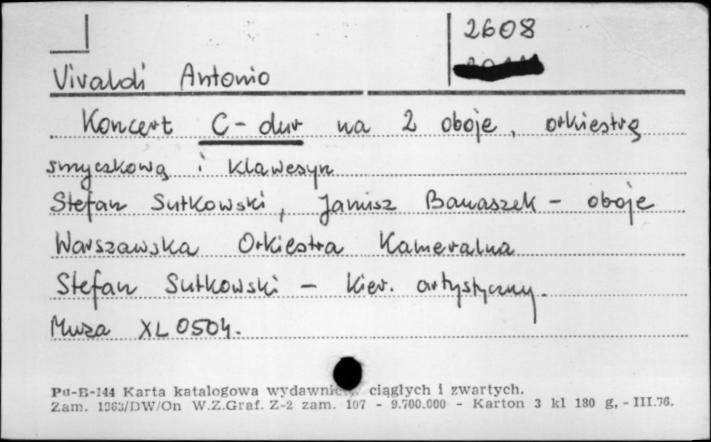 2608
Vivaldi Antonio
Koncert C-dur na 2 oboje, orkiestrę
smyczkową i klawesyn
Stefan Sutkowski, Janusz Banaszek - oboje
Warszawska Orkiestra Kameralna
Stefan Sutkowski - kier. artystyczny.
Muza XL 0504.
Pu-B-144 Karta katalogowa wydawnictw ciągłych i zwartych.
Zam. 1963/DW/On W.Z.Graf. Z-2 zam. 107 - 9.700.000 - Karton 3 kl 180 g, - III.76.